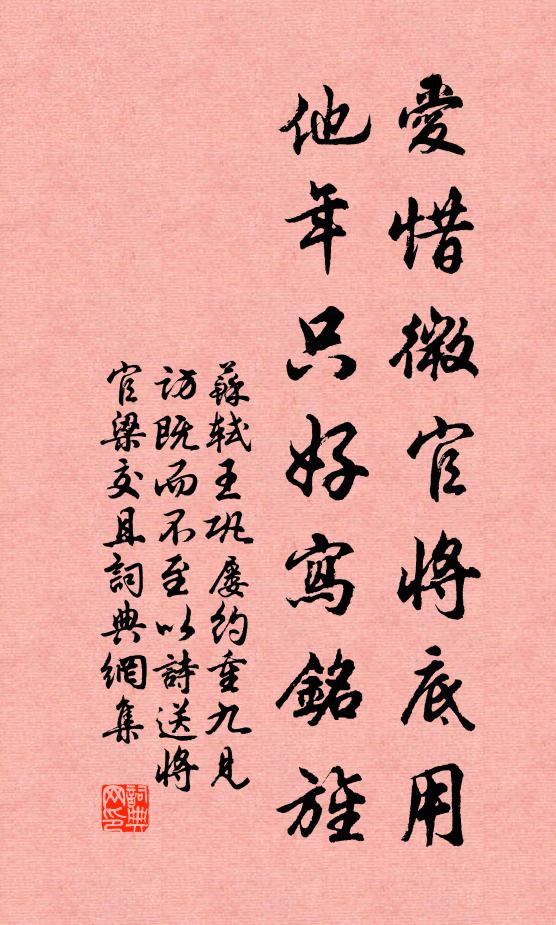 愛惜微官將底用
他年只好寫銘旌
蘇軾王巩屢約重九見
訪既而不至以詩送將
官梁交且詞典網集
詞典网印